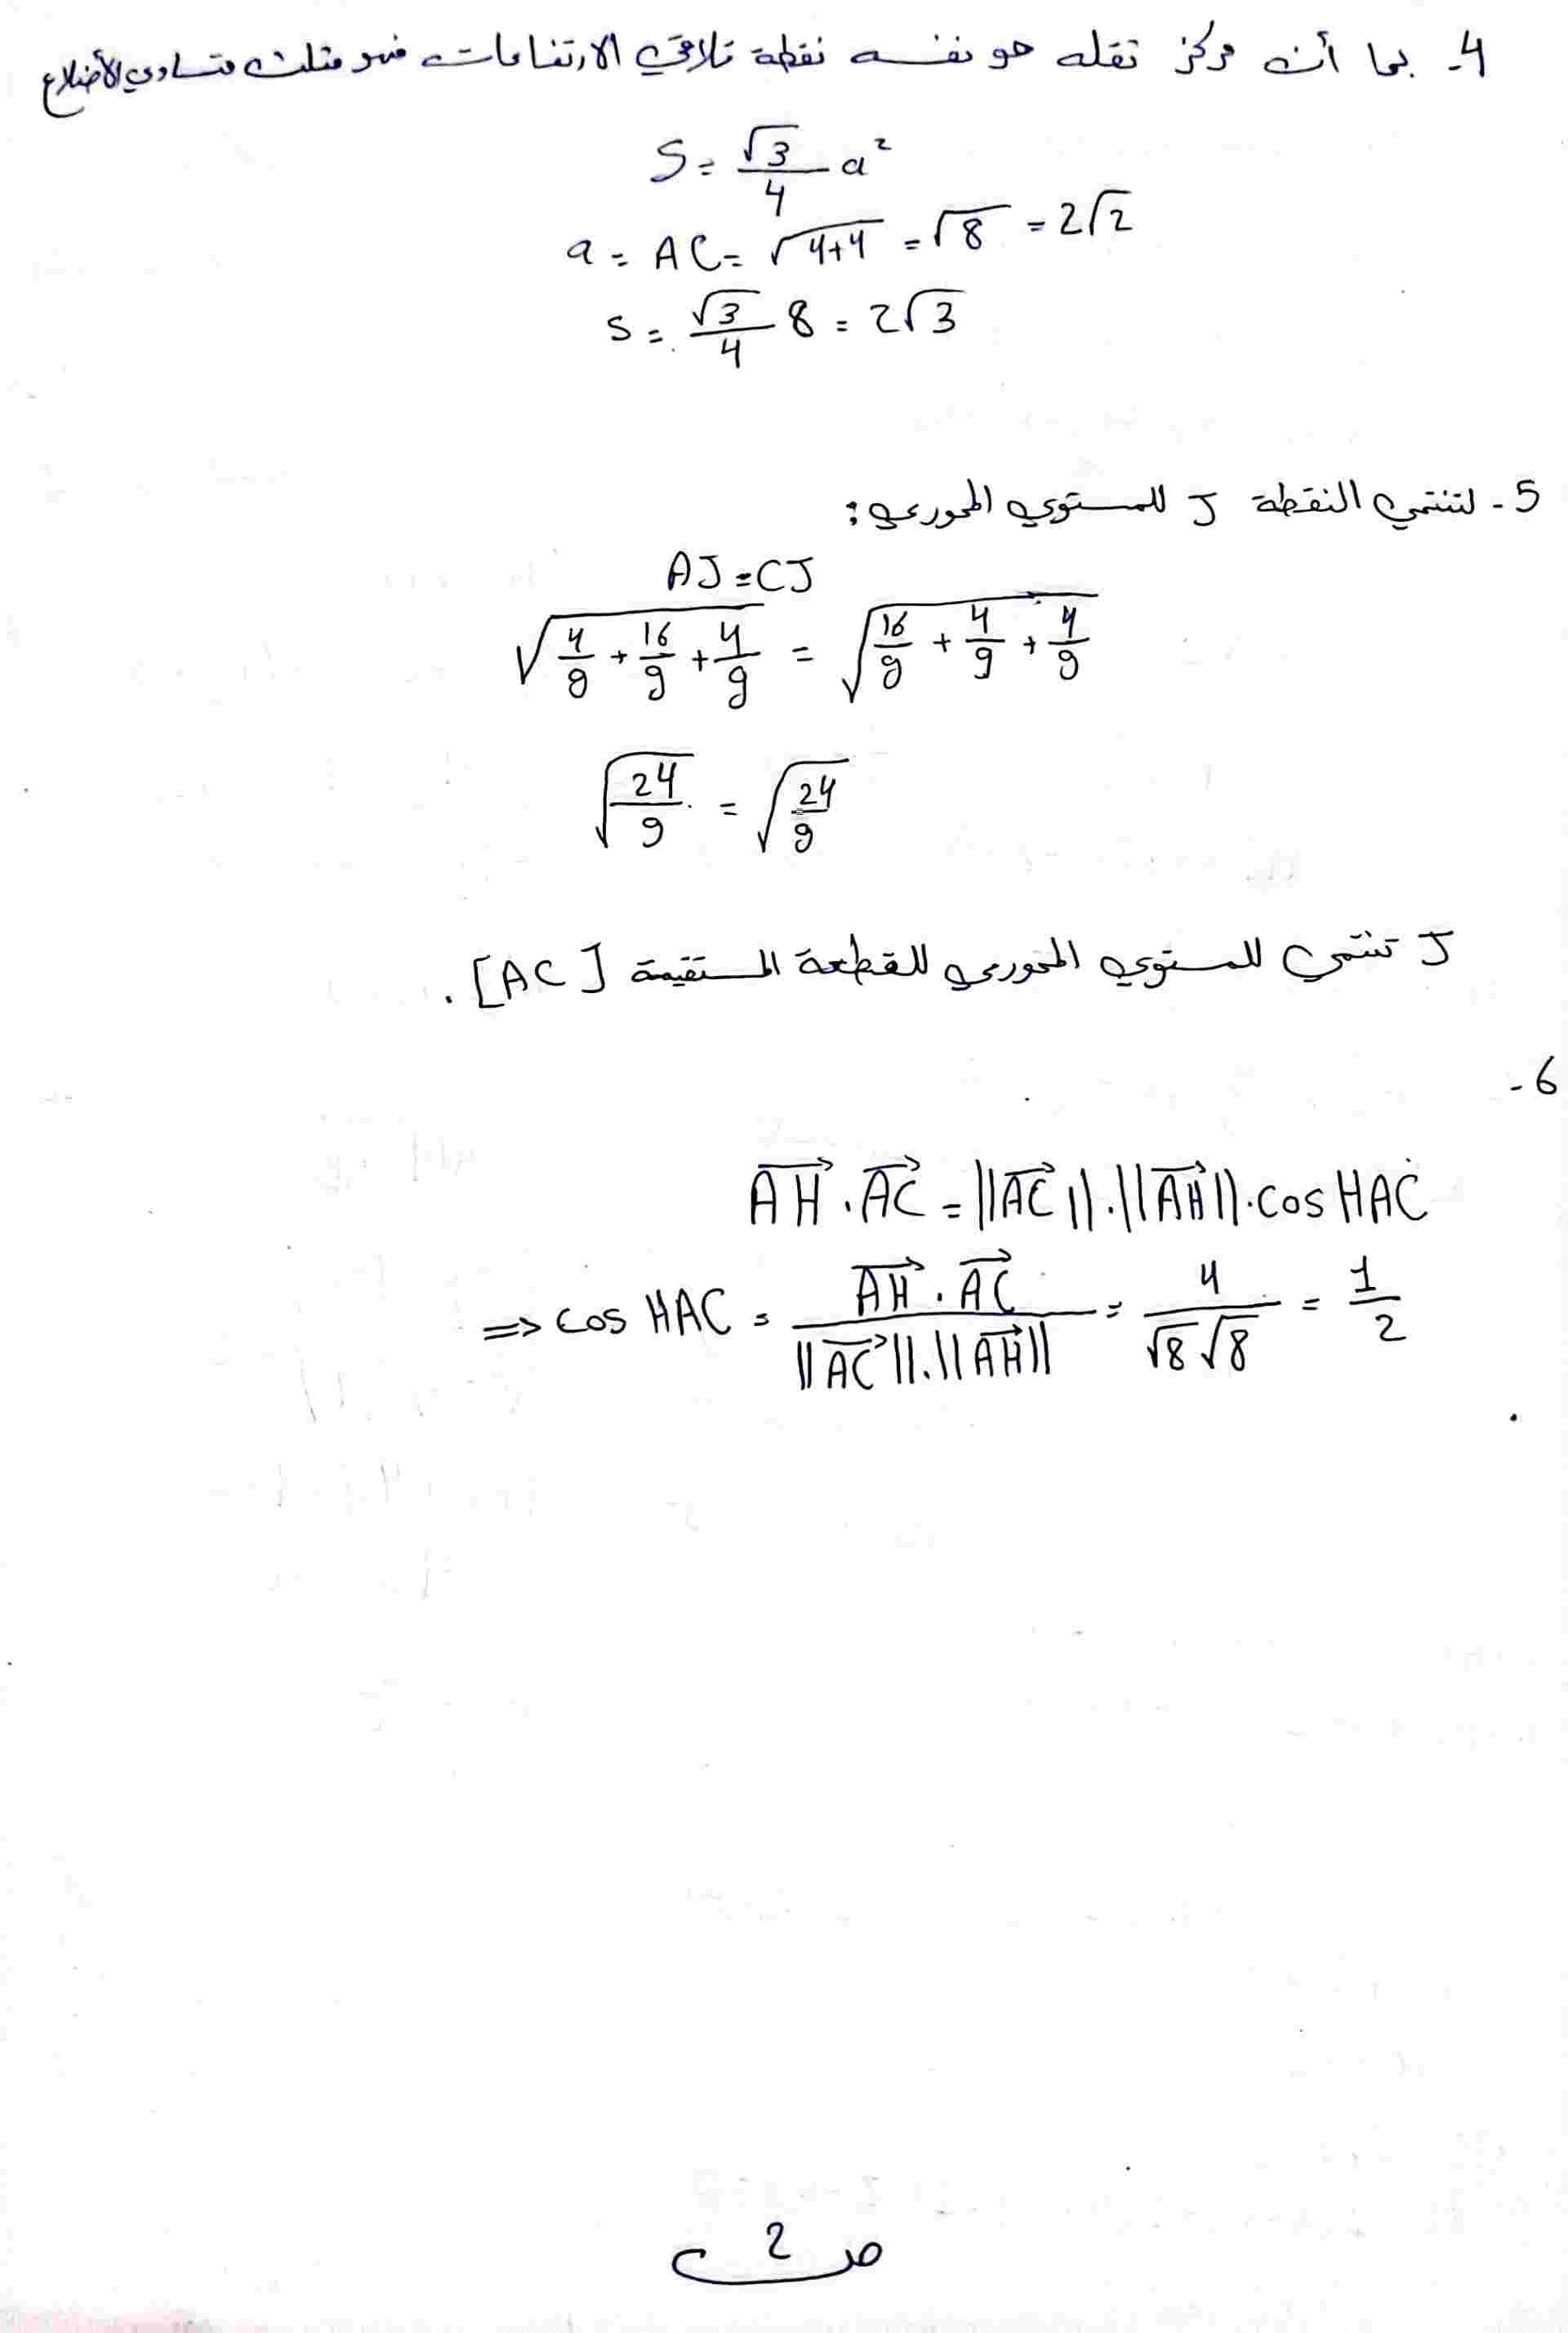 4- بما أن مركز ثقله هو نفسه نقطة تلاقي الارتفاعات فهو مثلث متساوي الأضلاع
S = √3/4 a²
a = AC = √(4+4) = √8 = 2√2
S = √3/4 8 = 2√3
5- لتنتمي النقطة J للمستوي المحوري:
AJ = CJ
√(4/9 + 16/9 + 4/9) = √(16/9 + 4/9 + 4/9)
√(24/9) = √(24/9)
J تنتمي للمستوي المحوري للقطعة المستقيمة [AC].
6-
AH→ . AC→ = ||AC→|| . ||AH→|| . cos HAC
=> cos HAC = (AH→ . AC→)/(||AC→|| . ||AH→||) = 4/(√8 √8) = 1/2
ص 2